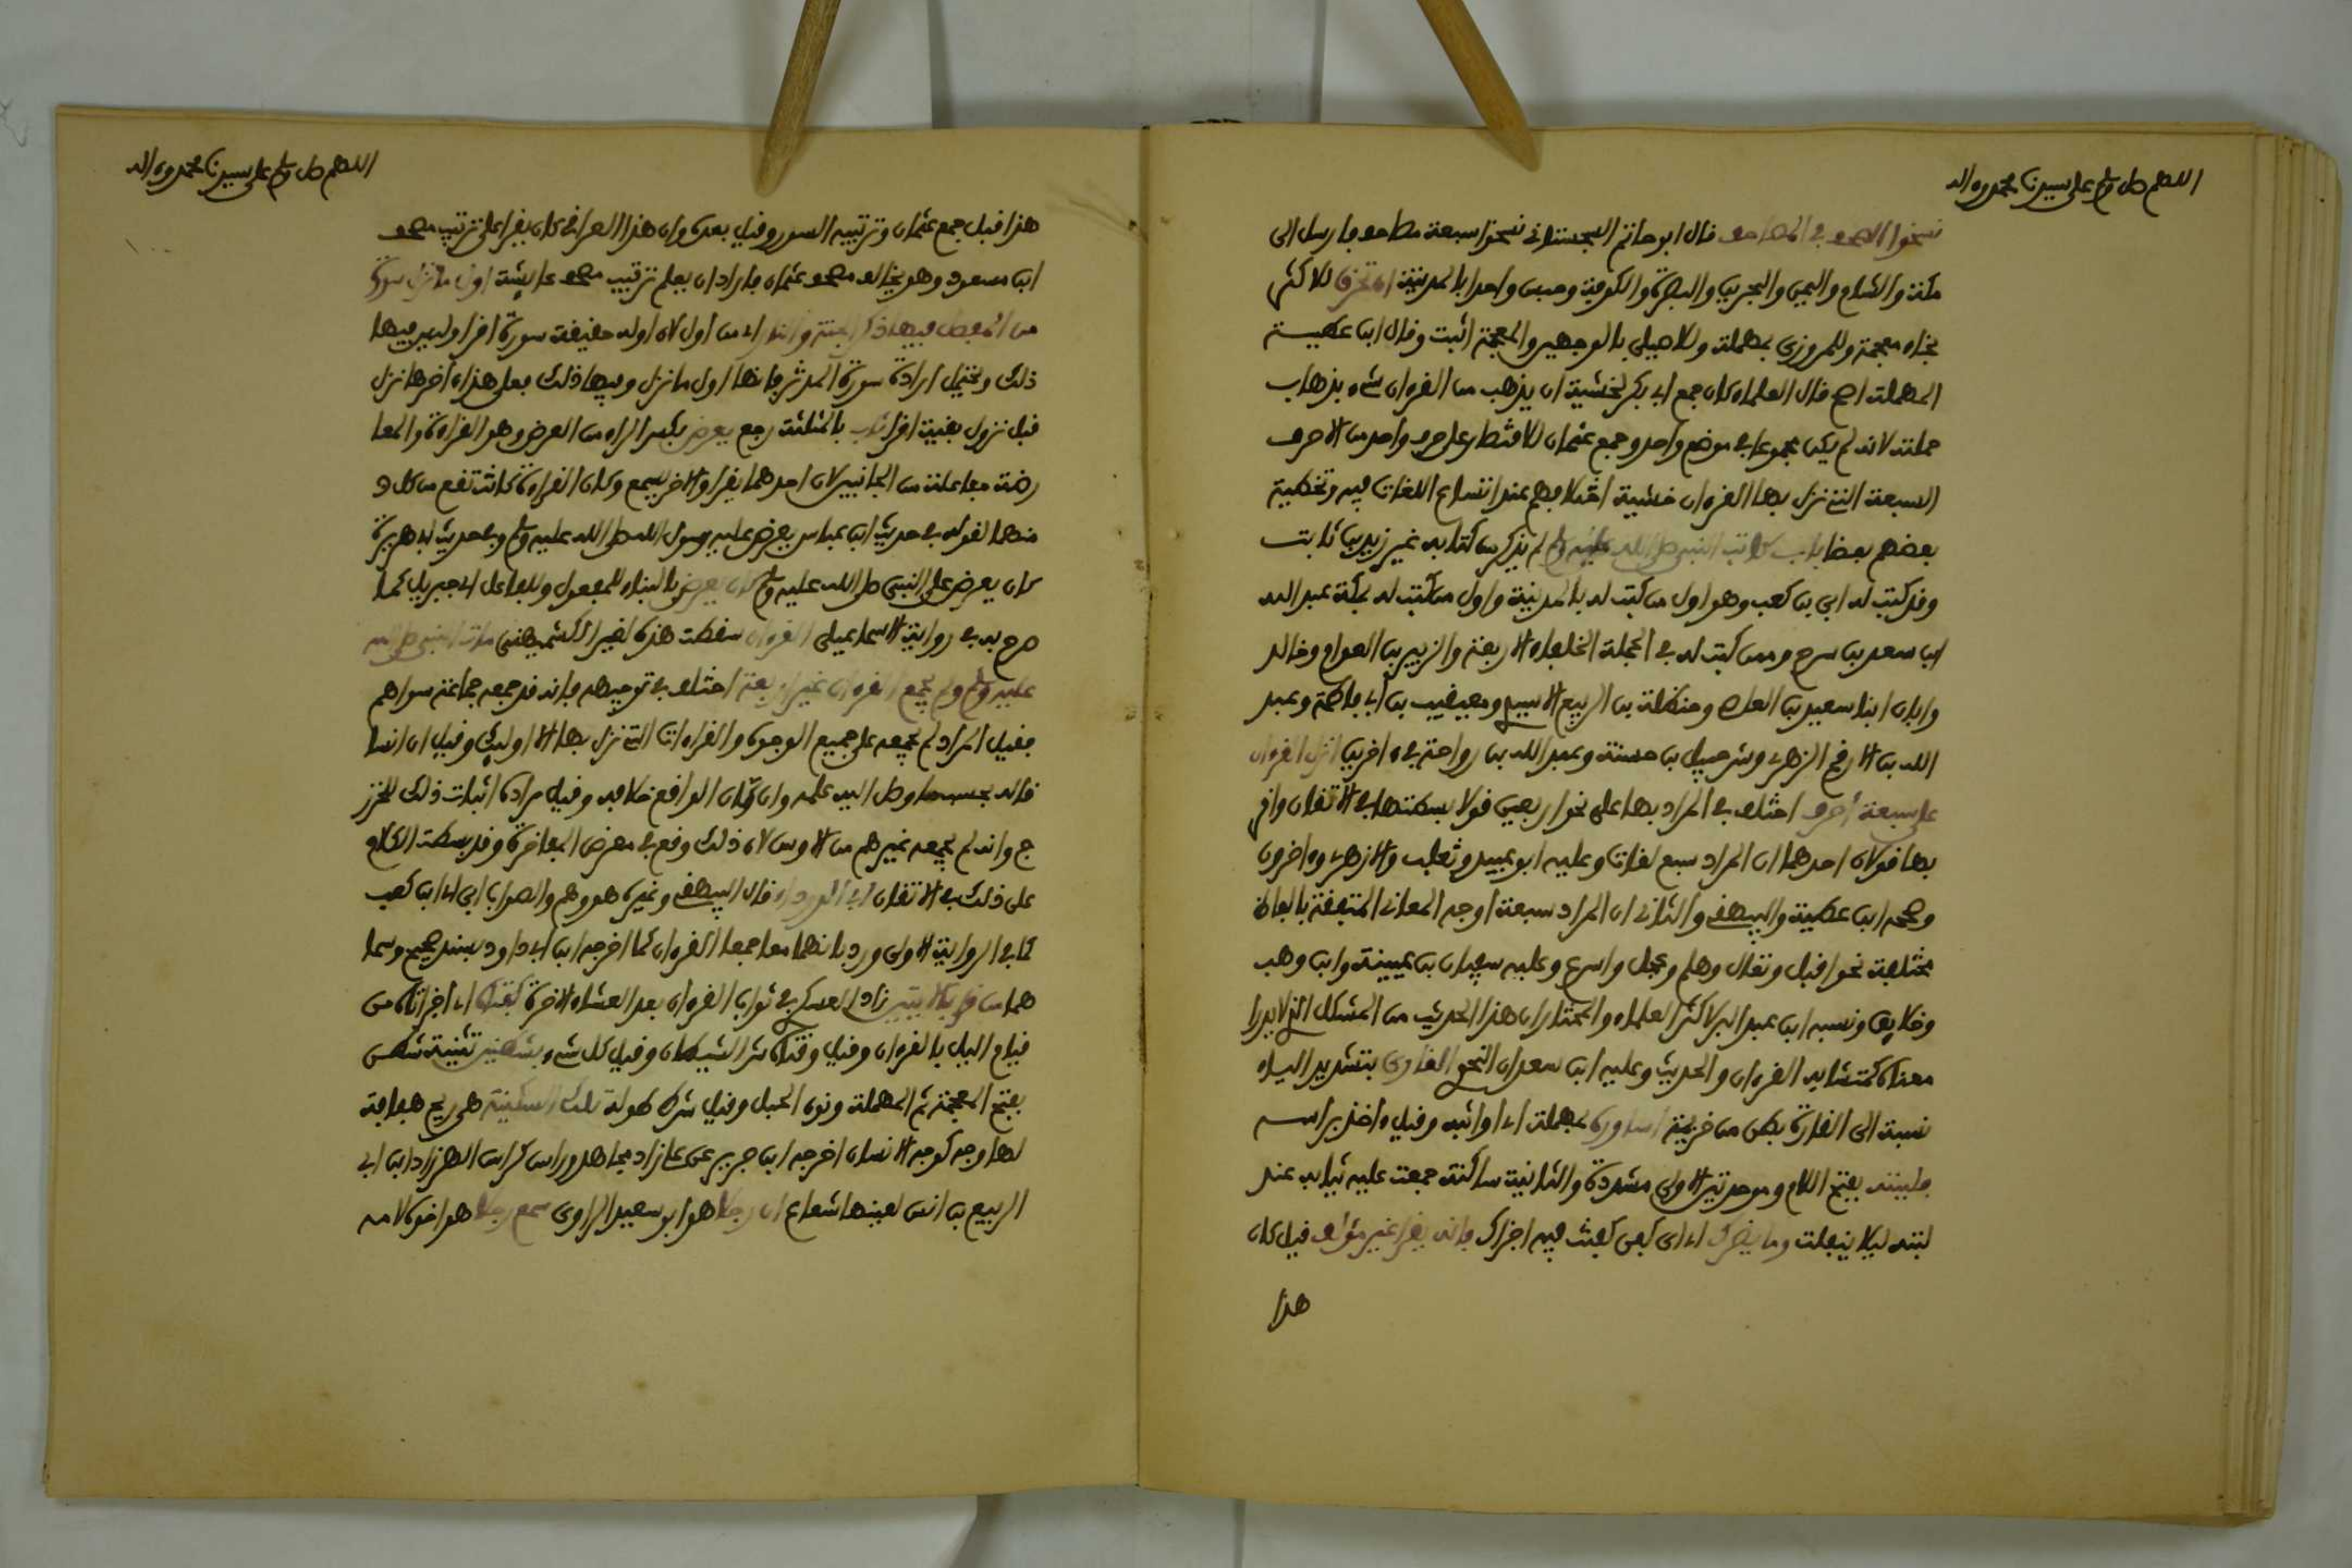 اللهم صل وسلم على سيدنا محمد وءاله
نسخوا الصحف في المصاحف قال ابو حاتم السجستاني نسخوا سبعة مصاحف فارسل الى
مكة والشام واليمن والبحرين والبصرة والكوفة وحبس واحدا بالمدينة ان تحرق للاكثر
بخاء معجمة وللمروزي بمهملة وللاصيلي بالوجهين والمعجمة اثبت وقال ابن عطية
المهملة اصح قال العلماء كان جمع ابي بكر لخشية ان يذهب من القرءان شيء بذهاب
حملته لانه لم يكن مجموعا في موضع واحد وجمع عثمان للاقتصار على حرف واحد من الاحرف
السبعة التي نزل بها القرءان خشية اختلافهم عند اتساع اللغات فيه وتخطية
بعضهم بعضا باب كاتب النبي صلى الله عليه وسلم لم يذكر من كتابه غير زيد بن ثابت
وقد كتب له ابي بن كعب وهو اول من كتب له بالمدينة واول من كتب له بمكة عبد الله
ابن سعد بن سرح وممن كتب له في الجملة الخلفاء الاربعة والزبير بن العوام وخالد
وابان ابنا سعيد بن العاص وحنظلة بن الربيع الاسيدي ومعيقيب بن ابي فاطمة وعبد
الله بن الارقم الزهري وشرحبيل بن حسنة وعبد الله بن رواحة في ءاخرين انزل القرءان
على سبعة احرف اختلف في المراد بها على نحو اربعين قولا بسطتها في الاتقان واقر
بها قولان احدهما ان المراد سبع لغات وعليه ابو عبيد وثعلب والازهري وءاخرون
وصححه ابن عطية والبيهقي والثاني ان المراد سبعة اوجه المعاني المتفقة بالفاظ
مختلفة نحو اقبل وتعال وهلم وعجل واسرع وعليه سفيان بن عيينة وابن وهب
وخلايق ونسبه ابن عبد البر لاكثر العلماء والمختار ان هذا الحديث من المشكل الذي لا يدرا
معناه كمتشابه القرءان والحديث وعليه ابن سعدان النحوي القاري بتشديد الياء
نسبة الى القارة بطن من خزيمة اساوره بمهملة اي اواثبه وقيل ءاخذ براسه
فلببته بفتح اللام وموحدتين الاولى مشددة والثانية ساكنة جمعت عليه ثيابه عند
لبته ليلا ينفلت وما يضرك اي اي كفن كفنت فيه اجزاك فانه يقرا غير مؤلف قيل كان
هذا
اللهم صل وسلم على سيدنا محمد وءاله
هذا قبل جمع عثمان وترتيبه السور وقيل بعده وان هذا العراقي كان يقرا على ترتيب مصحف
ابن مسعود وهو يخالف مصحف عثمان فاراد ان يعلم ترتيب مصحف عايشة اول ما نزل سورة
من المفصل فيها ذكر الجنة والنار اي من اول لان اوله حقيقة سورة اقرا وليس فيها
ذلك ويحتمل ارادة سورة المدثر فانها اول ما نزل وفيها ذلك فعلى هذا ءاخرها نزل
قبل نزول بقية اقرا ثاب بالمثلثة رجع يعرض بكسر الراء من العرض وهو القراءة والمعا
رضة مفاعلة من الجانبين لان احدهما يقرا والاخر يسمع وكان القراءة كانت تقع من كل و
منهما لقوله في حديث ابن عباس يعرض عليه رسول الله صلى الله عليه وسلم وفي حديث ابي هريرة
كان يعرض على النبي صلى الله عليه وسلم كان يعرض بالبناء للمفعول وللفاعل اي جبريل كما
صرح به في رواية الاسماعيلي القرءان سقطت هذه لغير الكشميهني مات النبي صلى الله
عليه وسلم ولم يجمع القرءان غير اربعة اختلف في توجيهه فانه قد جمعه جماعة سواهم
فقيل المراد لم يجمعه على جميع الوجوه والقراءات التي نزل بها الا اوليك وقيل ان انسا
قاله بحسب ما وصل اليه علمه وان كان الواقع خلافه وقيل مراده اثبات ذلك للخزر
ج وانه لم يجمعه غيرهم من الاوس لان ذلك وقع في معرض المفاخرة وقد بسطت الكلام
على ذلك في الاتقان ابي الدرداء قال البيهقي وغيره هو وهم والصواب ابي اي ابن كعب
كما في الرواية الاولى ورد بانهما معا جمعا القرءان كما اخرجه ابن ابي داود بسند صحيح وسما
هما من قرا بالايتين زاد العسكري في ثواب القرءان بعد العشاء الاخرة كفتاه اي اجزاتاه من
قيام الليل بالقرءان وقيل وقتاه شر الشيطان وقيل كل شيء بشطنين تثنية شطن
بفتح المعجمة ثم المهملة ونون الحبل وقيل بشرط طوله تلك السكينة هي ريح هفافة
لها وجه كوجه الانسان اخرجه ابن جرير عن علي زاد مجاهد وراس كراس الهر زاد ابن ابي
الربيع بن انس لعينها شعاع ان رجلا هو ابو سعيد الراوي سمع رجلا هو اخوه لامه